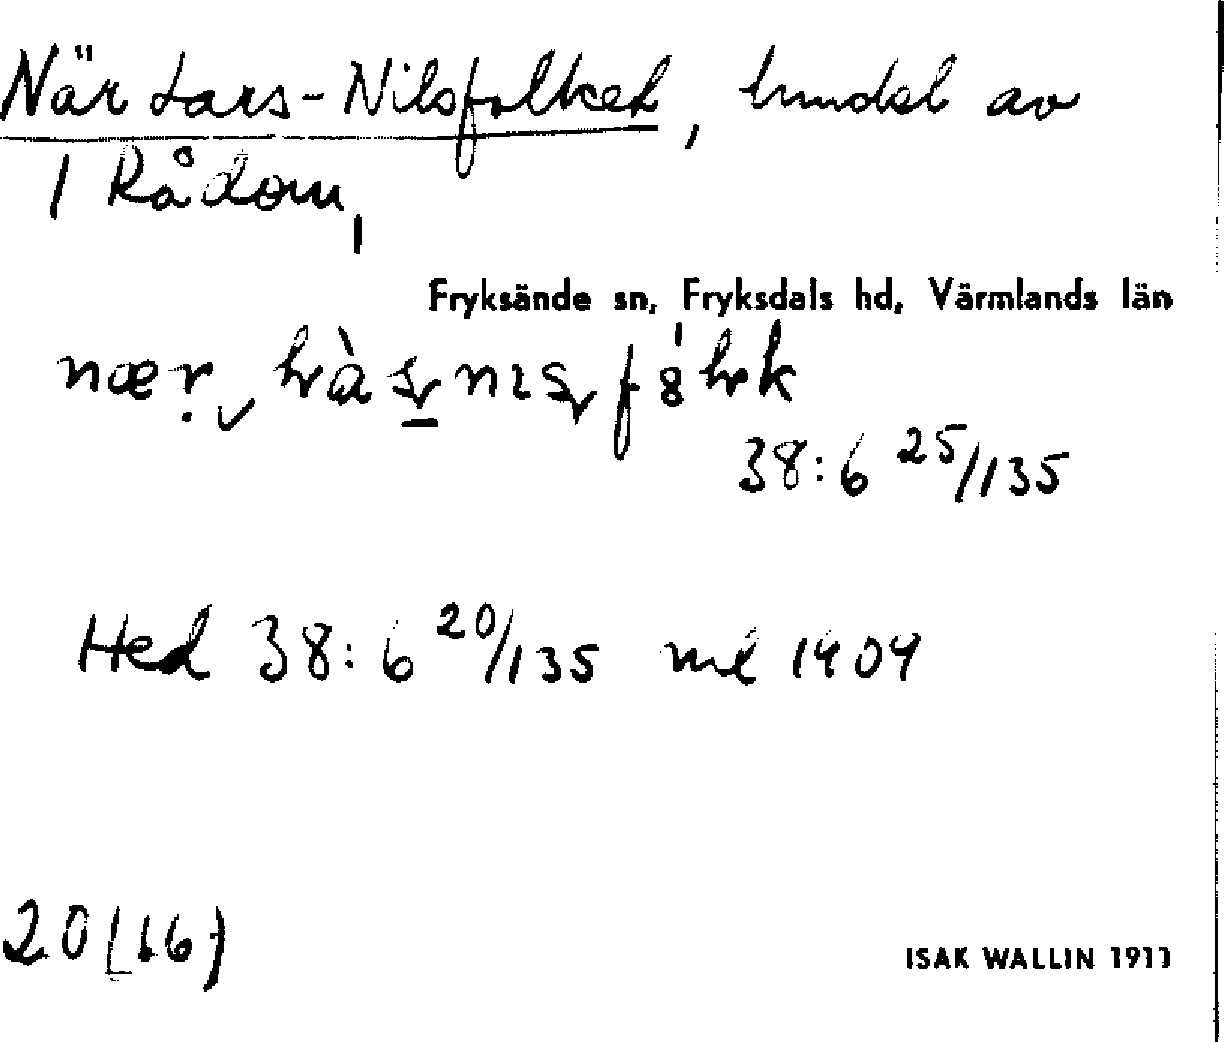 När Lars-Nilsfolket, hmdel av
1 Rådom,
Fryksände sn, Fryksdals hd, Värmlands län
38:6 25/135
Hed 38:6 20/135 ml 1404
20(16)
ISAK WALLIN 1911